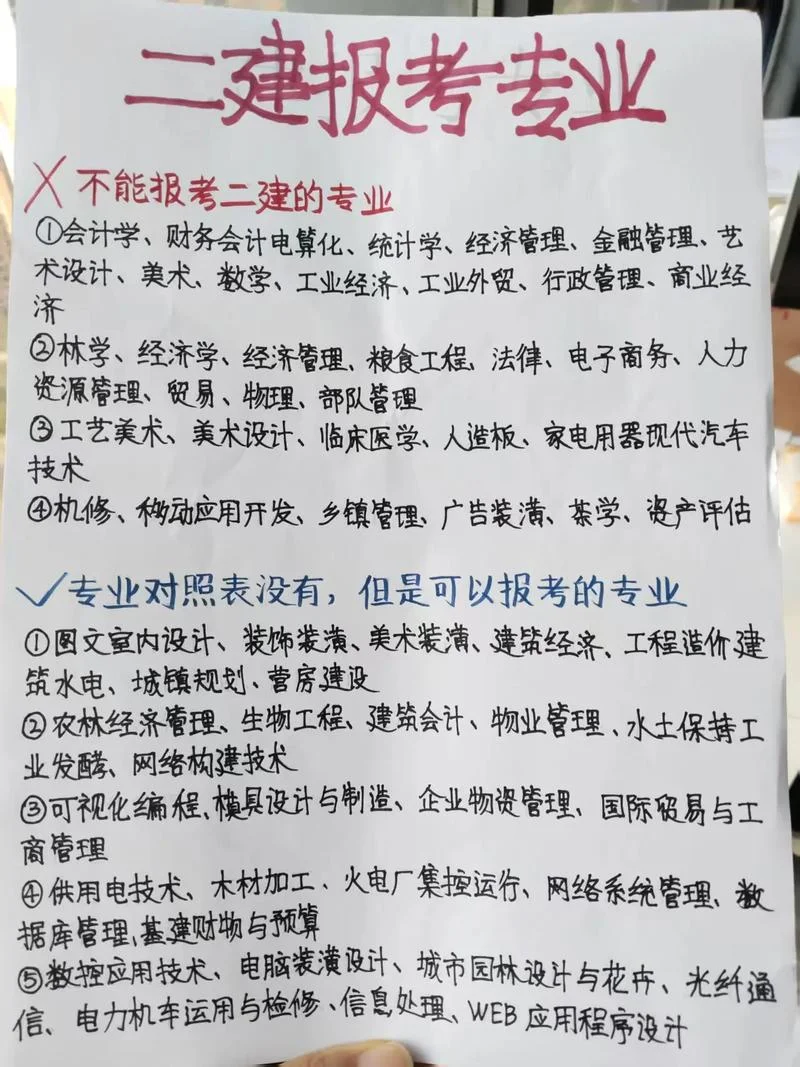 二建报考专业
✗ 不能报考二建的专业
①会计学、财务会计电算化、统计学、经济管理、金融管理、艺
术设计、美术、数学、工业经济、工业外贸、行政管理、商业经
济
②林学、经济学、经济管理、粮食工程、法律、电子商务、人力
资源管理、贸易、物理、部队管理
③工艺美术、美术设计、临床医学、人造板、家电用器现代汽车
技术
④机修、移动应用开发、乡镇管理、广告装潢、茶学、资产评估
✓专业对照表没有，但是可以报考的专业
①图文室内设计、装饰装潢、美术装潢、建筑经济、工程造价建
筑水电、城镇规划、营房建设
②农林经济管理、生物工程、建筑会计、物业管理、水土保持工
业发酵、网络构建技术
③可视化编程、模具设计与制造、企业物资管理、国际贸易与工
商管理
④供用电技术、木材加工、火电厂集控运行、网络系统管理、数
据库管理、基建财物与预算
⑤数控应用技术、电脑装潢设计、城市园林设计与花卉、光纤通
信、电力机车运用与检修、信息处理、WEB应用程序设计